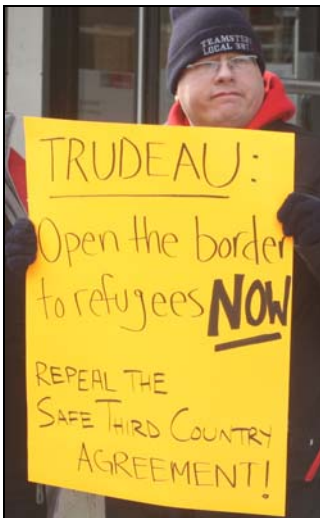 TEAMSTERS
LOCAL
TRUDEAU:
Open the border
to refugees NOW
REPEAL THE
SAFE THIRD COUNTRY
AGREEMENT!